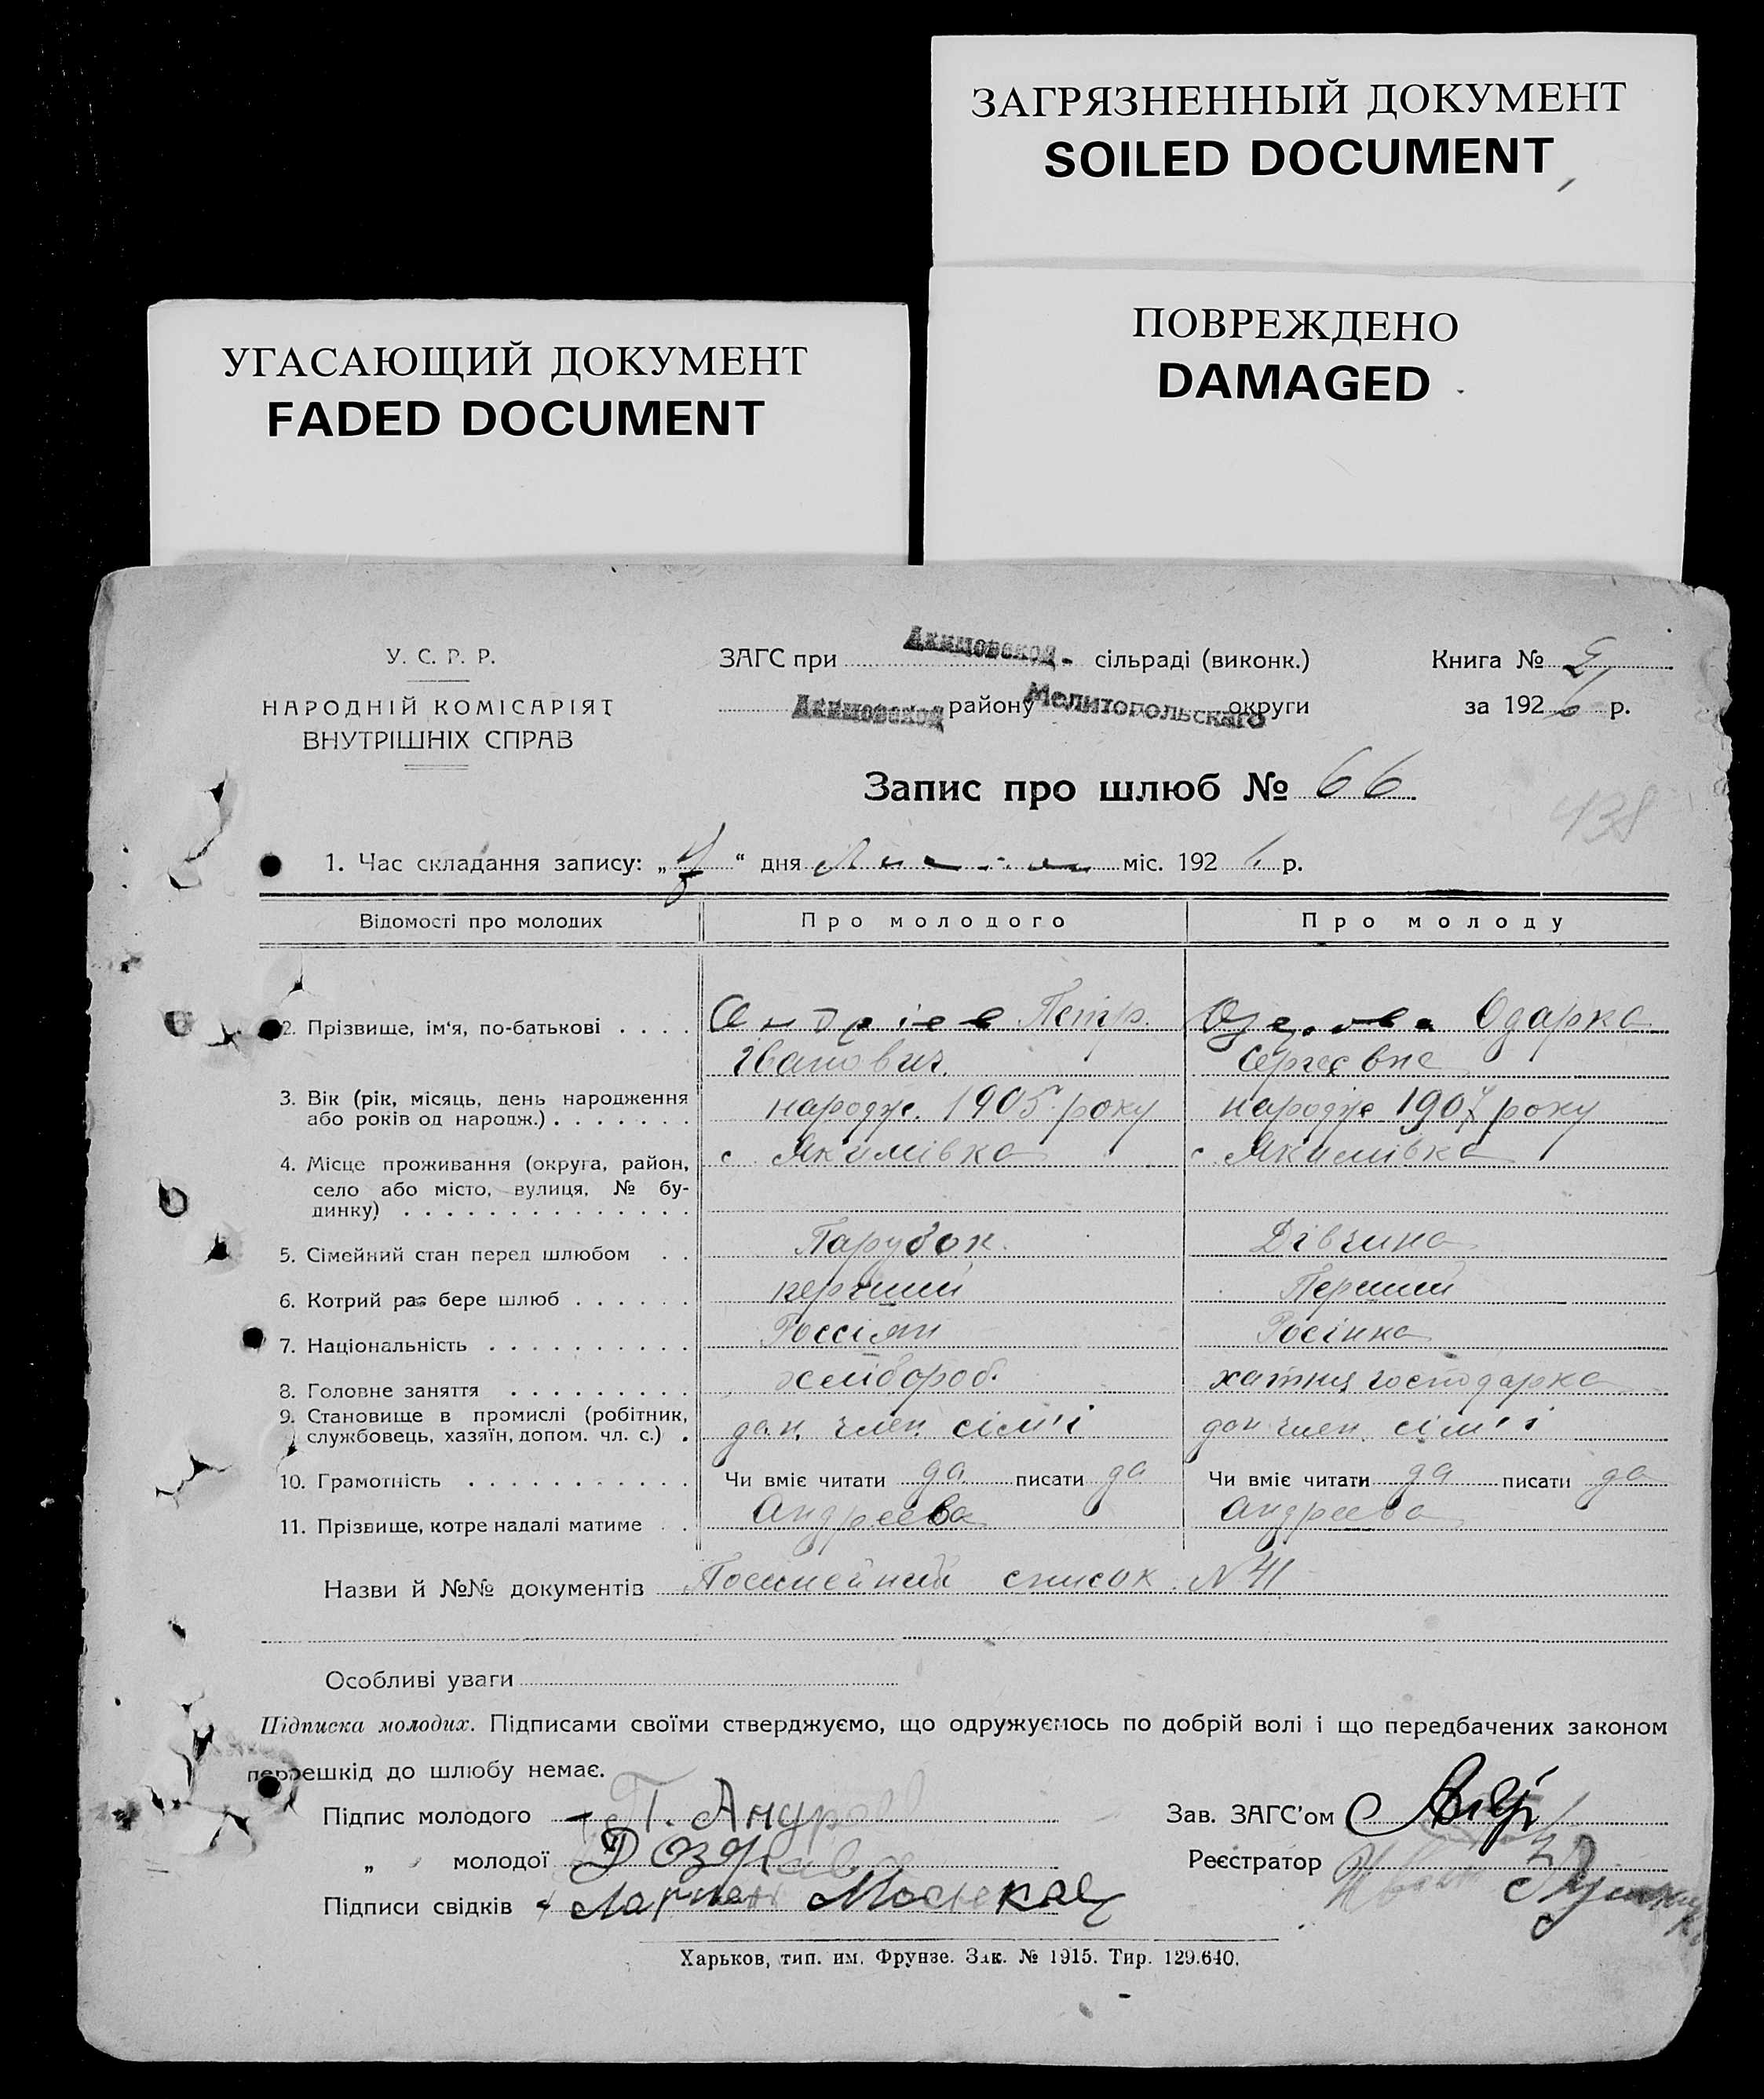 ЗАГРЯЗНЕННЫЙ ДОКУМЕНТ
SOILED DOCUMENT
УГАСАЮЩИЙ ДОКУМЕНТ
FADED DOCUMENT
ПОВРЕЖДЕНО
DAMAGED
У. С. Р. Р.
НАРОДНІЙ КОМІСАРІЯТ
ВНУТРІШНІХ СПРАВ
ЗАГС при Акимовской сільраді (виконк.)
Акимовской району Мелитопольскаго округи
Книга №
за 1926 р.
Запис про шлюб № 66
438
1. Час складання запису: „ “ дня міс. 192 р.
Відомості про молодих
Про молодого
Про молоду
2. Прізвище, ім'я, по-батькові . . . .
Андріев Петр.
Іванович.
Одарка
Сергеєвна
3. Вік (рік, місяць, день народження
або років од народж.) . . . . . . .
народж. 1905 року
народже 1907 року
4. Місце проживання (округа, район,
село або місто, вулиця, № бу-
динку) . . . . . . . . . . . . . .
с Якимівка
с. Якимівка
5. Сімейний стан перед шлюбом . .
Парубок.
Дівчина
6. Котрий раз бере шлюб . . . . . .
перший
Перший
7. Національність . . . . . . . . . .
Россіян
Росінка
8. Головне заняття . . . . . . . . .
хлібороб.
хатня господарка
9. Становище в промислі (робітник,
службовець, хазяїн, допом. чл. с.) .
член сім'ї
член. сім'ї
10. Грамотність . . . . . . . . . . .
Чи вміє читати да писати да
Чи вміє читати да писати да
11. Прізвище, котре надалі матиме . .
Андреева
Андреева
Назви й №№ документів Посімейний список N 41
Особливі уваги
Підписка молодих. Підписами своїми стверджуємо, що одружуємось по добрій волі і що передбачених законом
перешкід до шлюбу немає.
Підпис молодого П.
„ молодої
Підписи свідків
Зав. ЗАГС'ом
Реєстратор
Харьков, тип. им. Фрунзе. Зак. № 1915. Тир. 129.640.